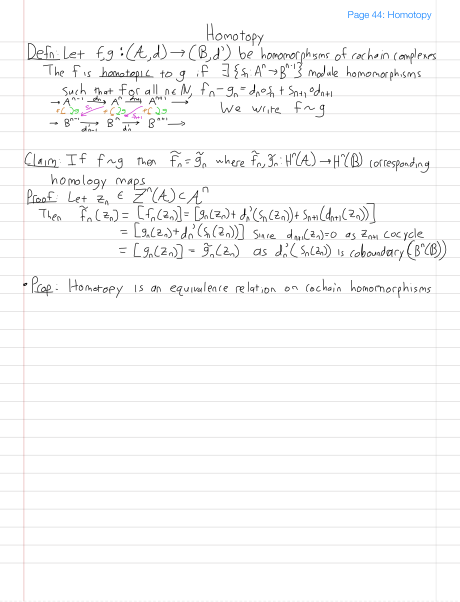 Page 44: Homotopy
Homotopy
Defn: Let f,g : (A,d) → (B,d') be homomorphisms of cochain complexes
The f is homotopic to g if ∃ {sₙ Aⁿ → Bⁿ⁻¹} module homomorphisms
such that for all n∈ℕ, fₙ - gₙ = dₙ∘sₙ + sₙ₊₁∘dₙ₊₁
→ Aⁿ⁻¹ → Aⁿ → Aⁿ⁺¹ →
We write f~g
→ Bⁿ⁻¹ → Bⁿ → Bⁿ⁺¹ →
Claim: If f~g then f̃ₙ = g̃ₙ where f̃ₙ, g̃ₙ : Hⁿ(A) → Hⁿ(B) corresponding
homology maps
Proof: Let zₙ ∈ Zⁿ(A) ⊂ Aⁿ
Then f̃ₙ(zₙ) = [fₙ(zₙ)] = [gₙ(zₙ) + dₙ'(sₙ(zₙ)) + sₙ₊₁(dₙ₊₁(zₙ))]
= [gₙ(zₙ) + dₙ'(sₙ(zₙ))] since dₙ₊₁(zₙ)=0 as zₙ₊₁ cocycle
= [gₙ(zₙ)] = g̃ₙ(zₙ) as dₙ'(sₙ(zₙ)) is coboundary (Bⁿ(B))
• Prop: Homotopy is an equivalence relation on cochain homomorphisms